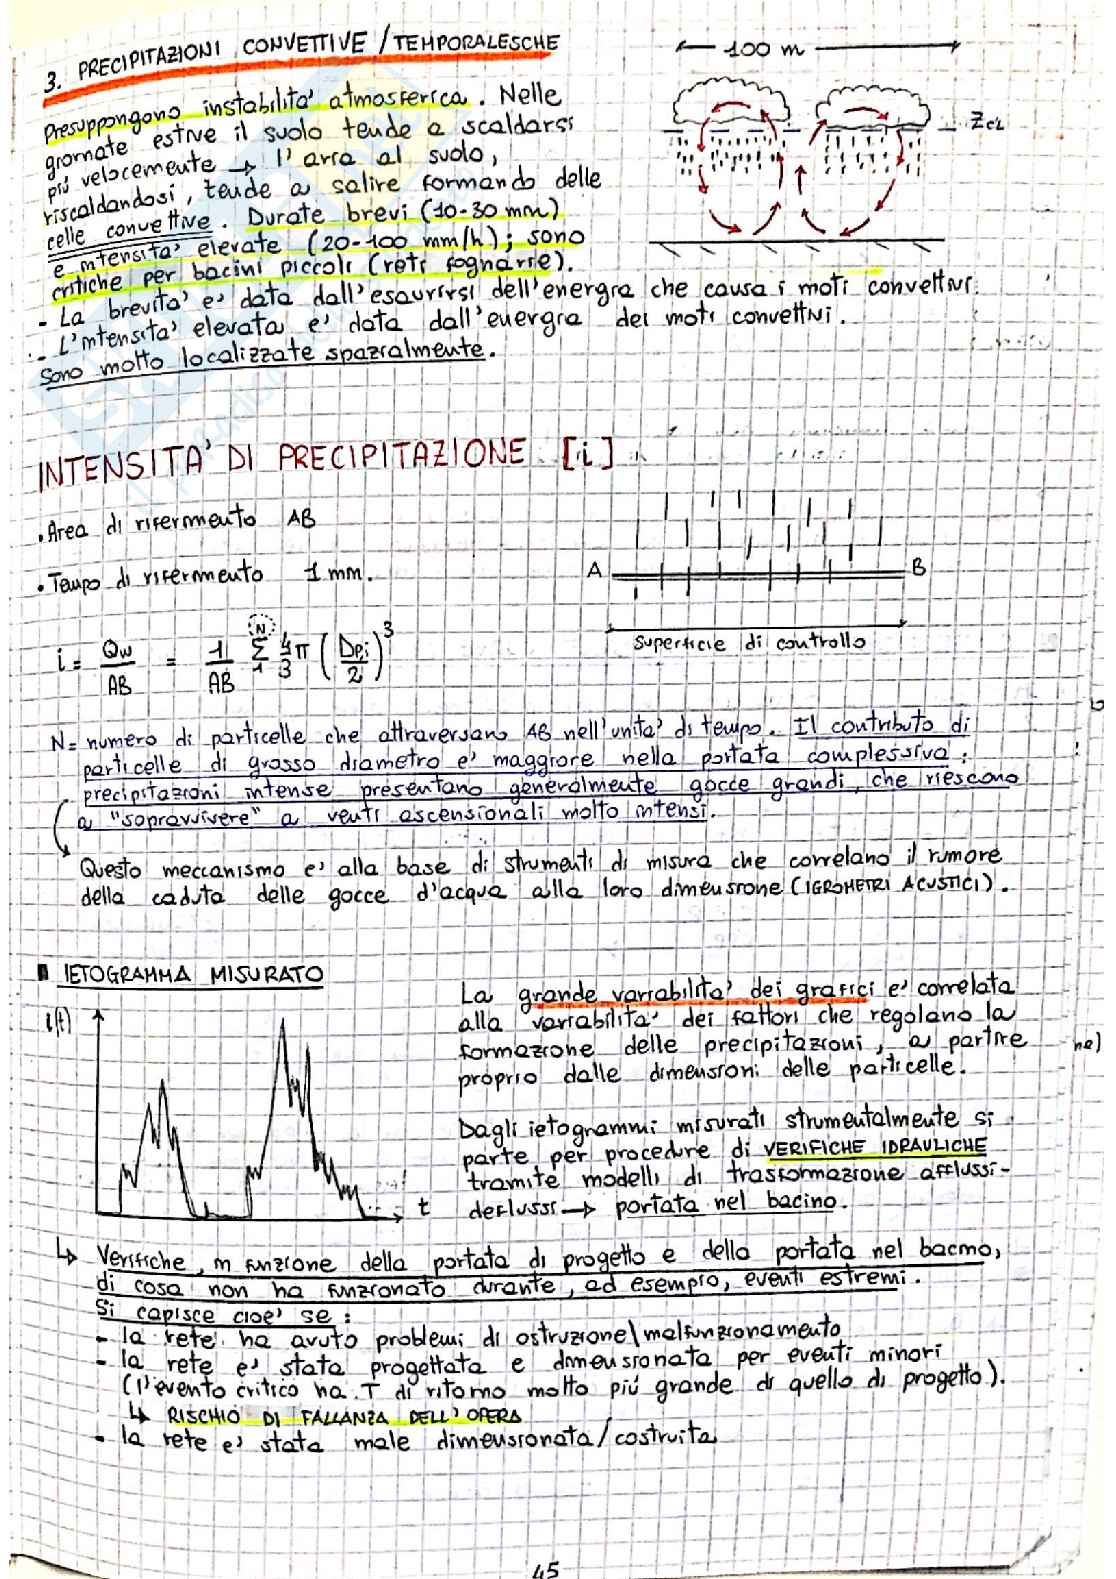 3. PRECIPITAZIONI CONVETTIVE / TEMPORALESCHE
Presuppongono instabilita' atmosferica. Nelle
giornate estive il suolo tende a scaldarsi
più velocemente → l'aria al suolo,
riscaldandosi, tende a salire formando delle
celle convettive. Durate brevi (10-30 min)
e intensita' elevate (20-100 mm/h); sono
critiche per bacini piccoli (reti fognarie).
- La brevita' e' data dall'esaurirsi dell'energia che causa i moti convettivi.
- L'intensita' elevata e' data dall'energia dei moti convettivi.
Sono molto localizzate spazialmente.
100 m
ZCL
INTENSITA' DI PRECIPITAZIONE [i]
• Area di riferimento AB
• Tempo di riferimento 1 min.
A B
Superficie di controllo
i = Qw/AB = 1/AB Σ₁ᴺ 4/3 π (Dpi/2)³
N= numero di particelle che attraversano AB nell'unita' di tempo. Il contributo di
particelle di grosso diametro e' maggiore nella portata complessiva:
precipitazioni intense presentano generalmente gocce grandi, che riescono
a "sopravvivere" a venti ascensionali molto intensi.
Questo meccanismo e' alla base di strumenti di misura che correlano il rumore
della caduta delle gocce d'acqua alla loro dimensione (IGROMETRI ACUSTICI).
IETOGRAMMA MISURATO
i(t)
t
La grande variabilita' dei grafici e' correlata
alla variabilita' dei fattori che regolano la
formazione delle precipitazioni, a partire
proprio dalle dimensioni delle particelle.
ne)
Dagli ietogrammi misurati strumentalmente si
parte per procedure di VERIFICHE IDRAULICHE
tramite modelli di trasformazione afflussi-
deflussi → portata nel bacino.
↳ Verifiche, in funzione della portata di progetto e della portata nel bacino,
di cosa non ha funzionato durante, ad esempio, eventi estremi.
Si capisce cioe' se:
- la rete ha avuto problemi di ostruzione\malfunzionamento
- la rete e' stata progettata e dimensionata per eventi minori
(l'evento critico ha T di ritorno molto più grande di quello di progetto).
↳ RISCHIO DI FALLANZA DELL'OPERA
- la rete e' stata male dimensionata/costruita
45